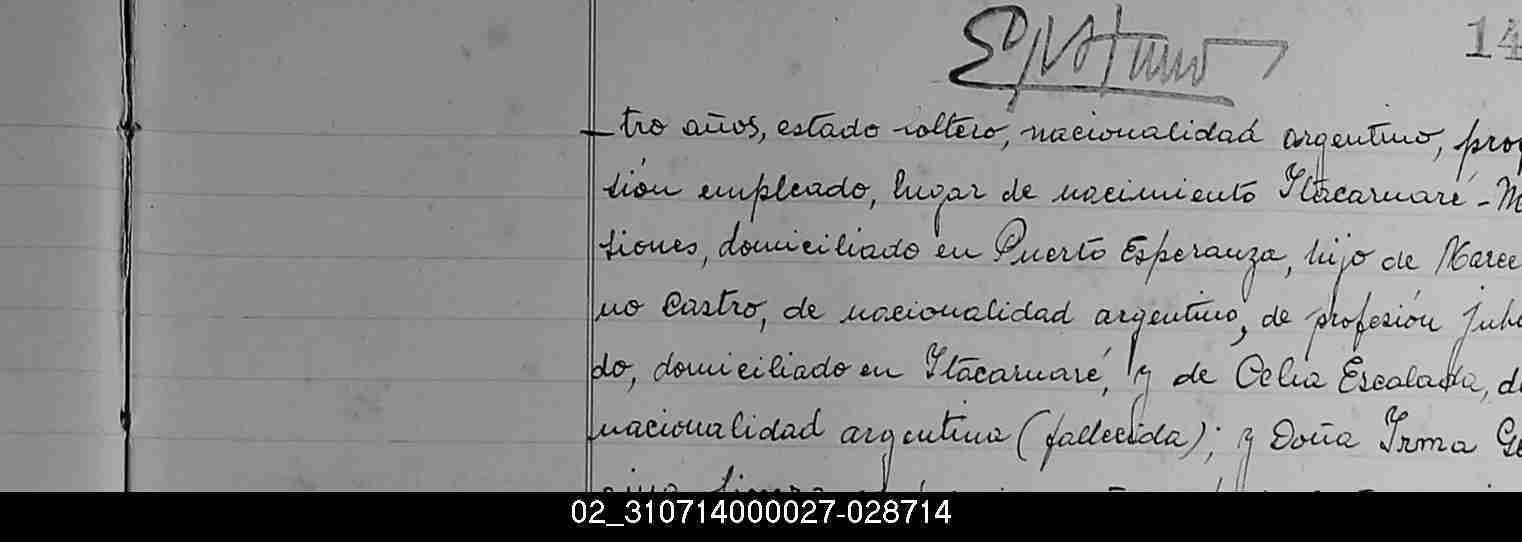 14
tro años, estado soltero, nacionalidad argentino, prof
sión empleado, lugar de nacimiento Itacaruaré - M
siones, domiciliado en Puerto Esperanza, hijo de Marce
no Castro, de nacionalidad argentino, de profesión jubi
do, domiciliado en Itacaruaré, y de Celia Escalada, de
nacionalidad argentina (fallecida); y Doña Irma Ge
02_310714000027-028714